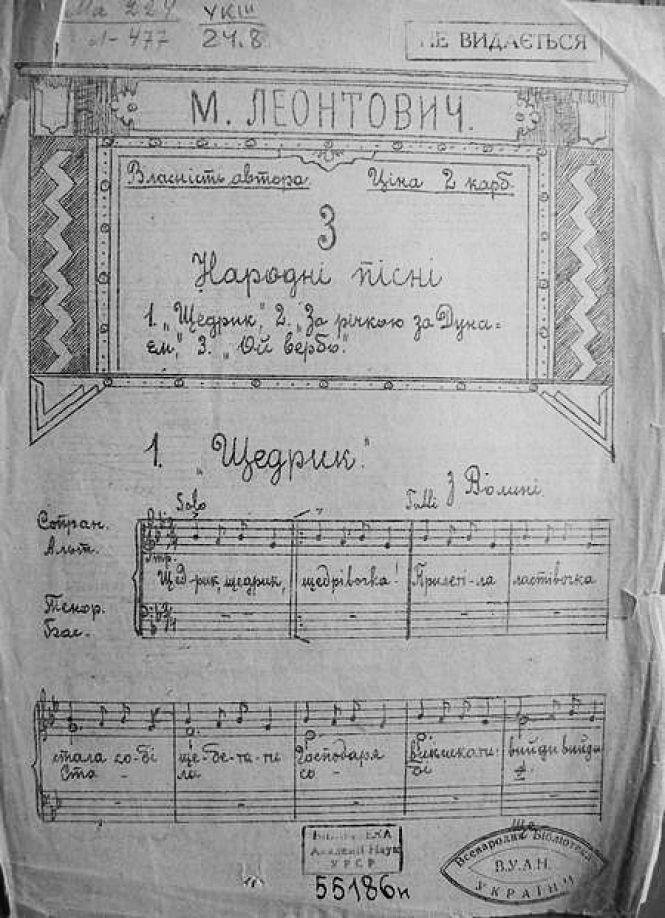 Ма 224 УКІІІ
Л-477 24.8
НЕ ВИДАЄТЬСЯ
М. ЛЕОНТОВИЧ.
Власність автора. Ціна 2 карб.
3
Народні пісні
1. „Щедрик", 2. „За річкою за Дуна=
єм," 3. „Ой вербо."
1. „Щедрик."
З Волині.
Solo Tutti
Сопран.
Альт.
mp.
Щед-рик, щедрик, щедрівочка! Прилеті-ла ластівочка
Тенор.
Бас.
стала со-бі ще-бе-та-ти Господаря викликати. вийди вийди
Ста - ла со - бі
Ще-
БІБЛІОТЕКА
Академії Наук
У.Р.С.Р.
55186н
Всенародня Бібліотека
В.У.А.Н.
УКРАЇНИ